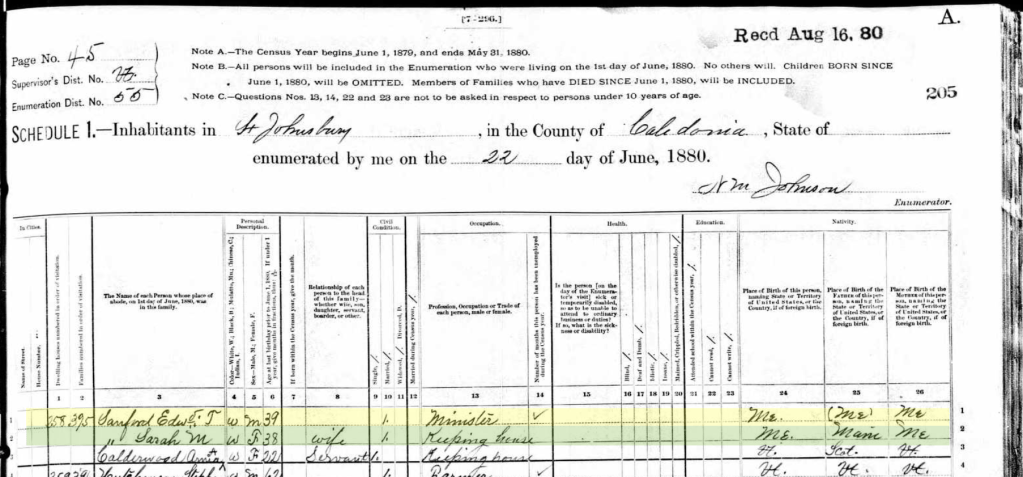 [7-296.]
A.
Recd Aug 16, 80
Page No. 45
Supervisor's Dist. No. Vt.
Enumeration Dist. No. 55
Note A.—The Census Year begins June 1, 1879, and ends May 31, 1880.
Note B.—All persons will be included in the Enumeration who were living on the 1st day of June, 1880. No others will. Children BORN SINCE
June 1, 1880, will be OMITTED. Members of Families who have DIED SINCE June 1, 1880, will be INCLUDED.
Note C.—Questions Nos. 13, 14, 22 and 23 are not to be asked in respect to persons under 10 years of age.
205
SCHEDULE 1.—Inhabitants in St Johnsbury, in the County of Caledonia, State of
enumerated by me on the 22 day of June, 1880.
N M Johnson
Enumerator.
In Cities.
Name of Street.
House Number.
Dwelling houses numbered in order of visitation.
Families numbered in order of visitation.
The Name of each Person whose place of
abode, on 1st day of June, 1880, was
in this family.
Personal
Description.
Color—White, W; Black, B; Mulatto, Mu; Chinese, C;
Indian, I.
Sex—Male, M; Female, F.
Age at last birthday prior to June 1, 1880. If under 1
year, give months in fractions, thus: 3/12
If born within the Census year, give the month.
Relationship of each
person to the head
of this family—
whether wife, son,
daughter, servant,
boarder, or other.
Civil
Condition.
Single, /
Married, /
Widowed, / Divorced, D.
Married during Census year, /
Occupation.
Profession, Occupation or Trade of
each person, male or female.
Number of months this person has been unemployed
during the Census year.
Health.
Is the person [on
day of the Enumera-
tor's visit] sick or
temporarily disabled,
so as to be unable to
attend to ordinary
business or duties?
If so, what is the sick-
ness or disability?
Blind, /
Deaf and Dumb, /
Idiotic, /
Insane, /
Maimed, Crippled, Bedridden, or otherwise disabled, /
Education.
Attended school within the Census year, /
Cannot read, /
Cannot write, /
Nativity.
Place of Birth of this person,
naming State or Territory
of United States, or the
Country, if of foreign birth.
Place of Birth of the
FATHER of this per-
son, naming the
State or Territory
of United States, or
the Country, if of
foreign birth.
Place of Birth of the
MOTHER of this per-
son, naming the
State or Territory
of United States, or
the Country, if of
foreign birth.
1 2 3 4 5 6 7 8 9 10 11 12 13 14 15 16 17 18 19 20 21 22 23 24 25 26
1 358 395 Sanford Edw. T W M 39 1 Minister ✓ Me. (Me) Me 1
2 " Sarah M W F 38 wife 1 Keeping house Me. Maine Me 2
3 Calderwood W F 22 Servant 1 Keeping house Vt. Scot. Vt. 3
W M 62 1 Farmer ✓ Vt. Vt. Vt. 4